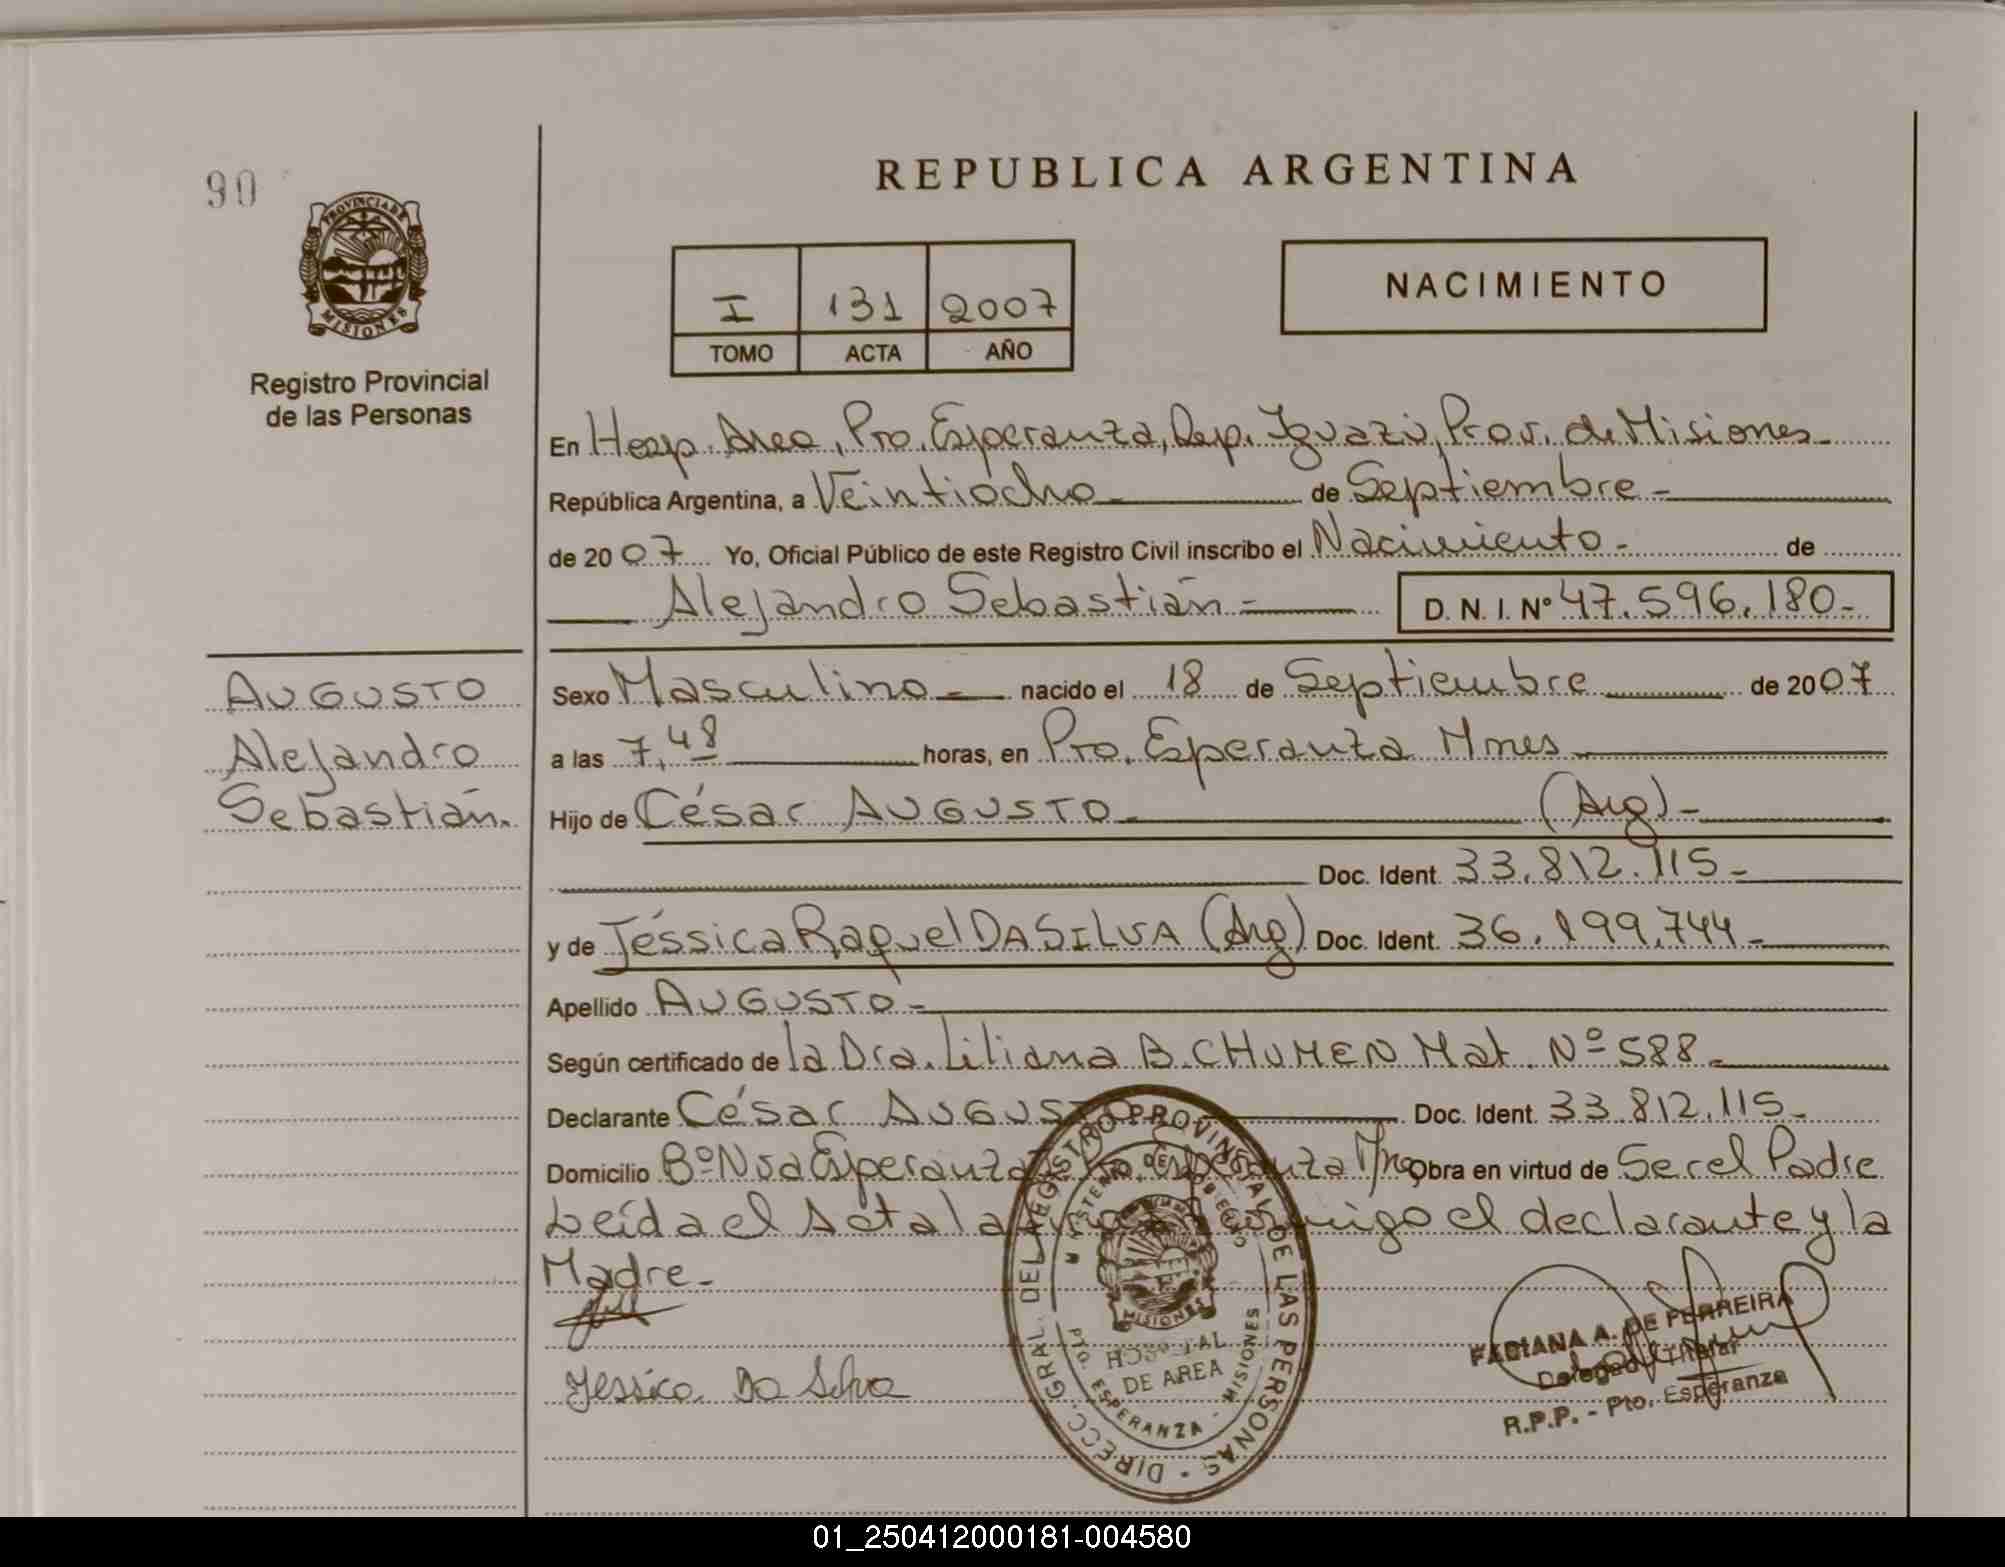 90
REPUBLICA ARGENTINA
PROVINCIA DE
MISIONES
Registro Provincial
de las Personas
I 131 2007
TOMO ACTA AÑO
NACIMIENTO
En Hosp. Area, Pto. Esperanza, Dep. Iguazú, Prov. de Misiones
República Argentina, a Veintiocho - de Septiembre -
de 2007 Yo, Oficial Público de este Registro Civil inscribo el Nacimiento - de
Alejandro Sebastián - D. N. I. Nº 47.596.180-
AUGUSTO
Alejandro
Sebastián.
Sexo Masculino - nacido el 18 de Septiembre de 2007
a las 7,48 horas, en Pto. Esperanza Mnes
Hijo de César AUGUSTO (Arg)-
Doc. Ident. 33.812.115-
y de Jéssica Raquel DA SILVA (Arg) Doc. Ident. 36.199.744-
Apellido AUGUSTO-
Según certificado de la Dra. Liliana B. CHUMEN Mat. Nº 588-
Declarante César AUGUSTO Doc. Ident. 33.812.115-
Domicilio Bº Nva Esperanza Pto. Esperanza Mnes Obra en virtud de Ser el Padre
Leída el Acta la firman conmigo el declarante y la
Madre-
Jessica Da Silva
DIRECC. GRAL. DEL REGISTRO PROVINCIAL DE LAS PERSONAS
MINISTERIO DE GOBIERNO
MISIONES
HOSPITAL
DE AREA
PTO. ESPERANZA - MISIONES
FABIANA A. DE FERREIRA
Delegada Titular
R.P.P. - Pto. Esperanza
01_250412000181-004580